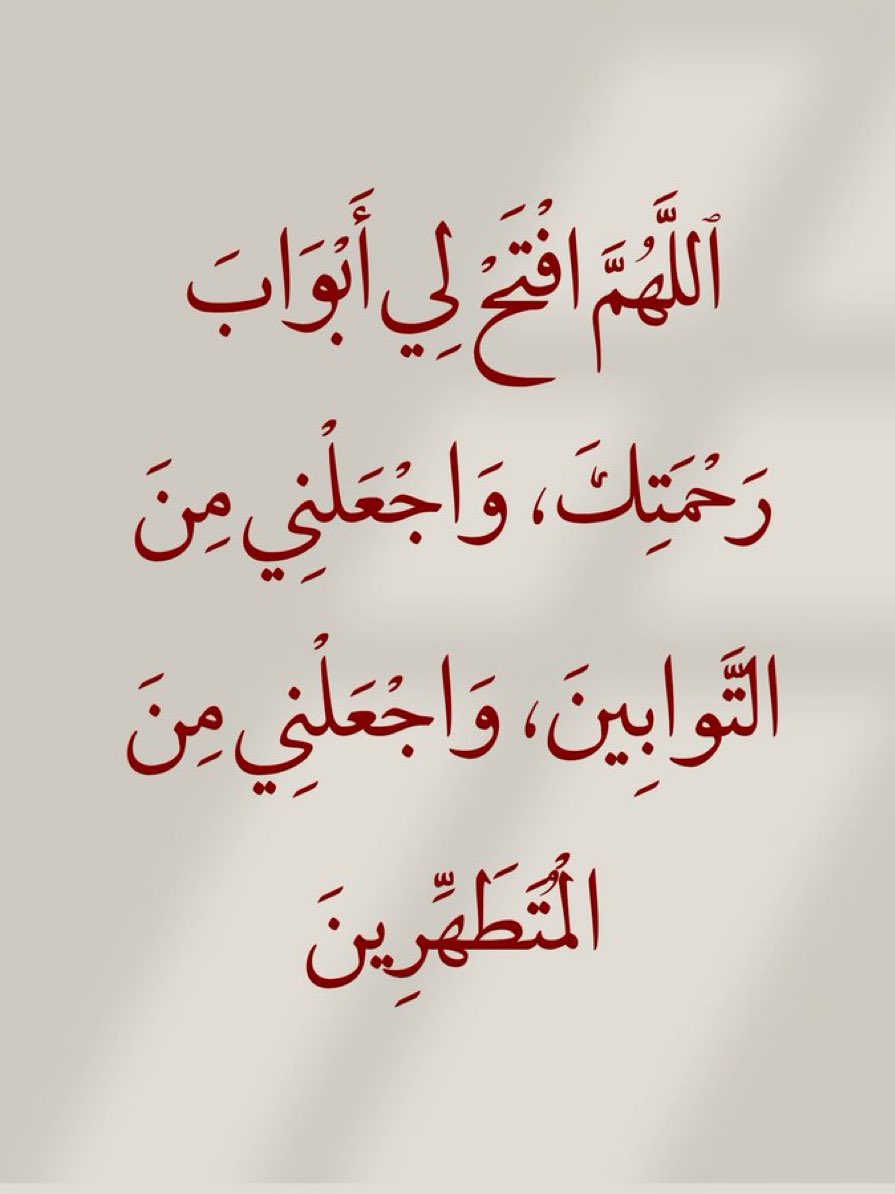 ٱللَّهُمَّ افْتَحْ لِي أَبْوَابَ
رَحْمَتِكَ، وَاجْعَلْنِي مِنَ
التَّوابِينَ، وَاجْعَلْنِي مِنَ
الْمُتَطَهِّرِينَ